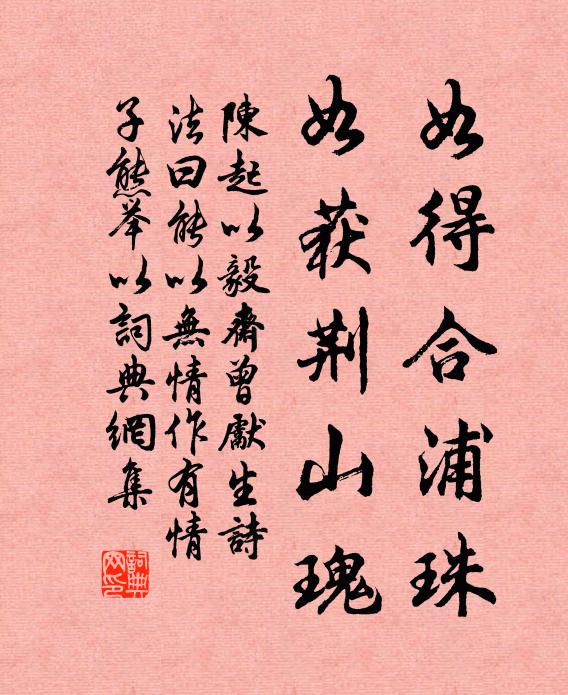 如得合浦珠
如获荆山瑰
陳起以毅齋曾獻生詩
法曰能以無情作有情
子熊举以詞典網集
詞典网印